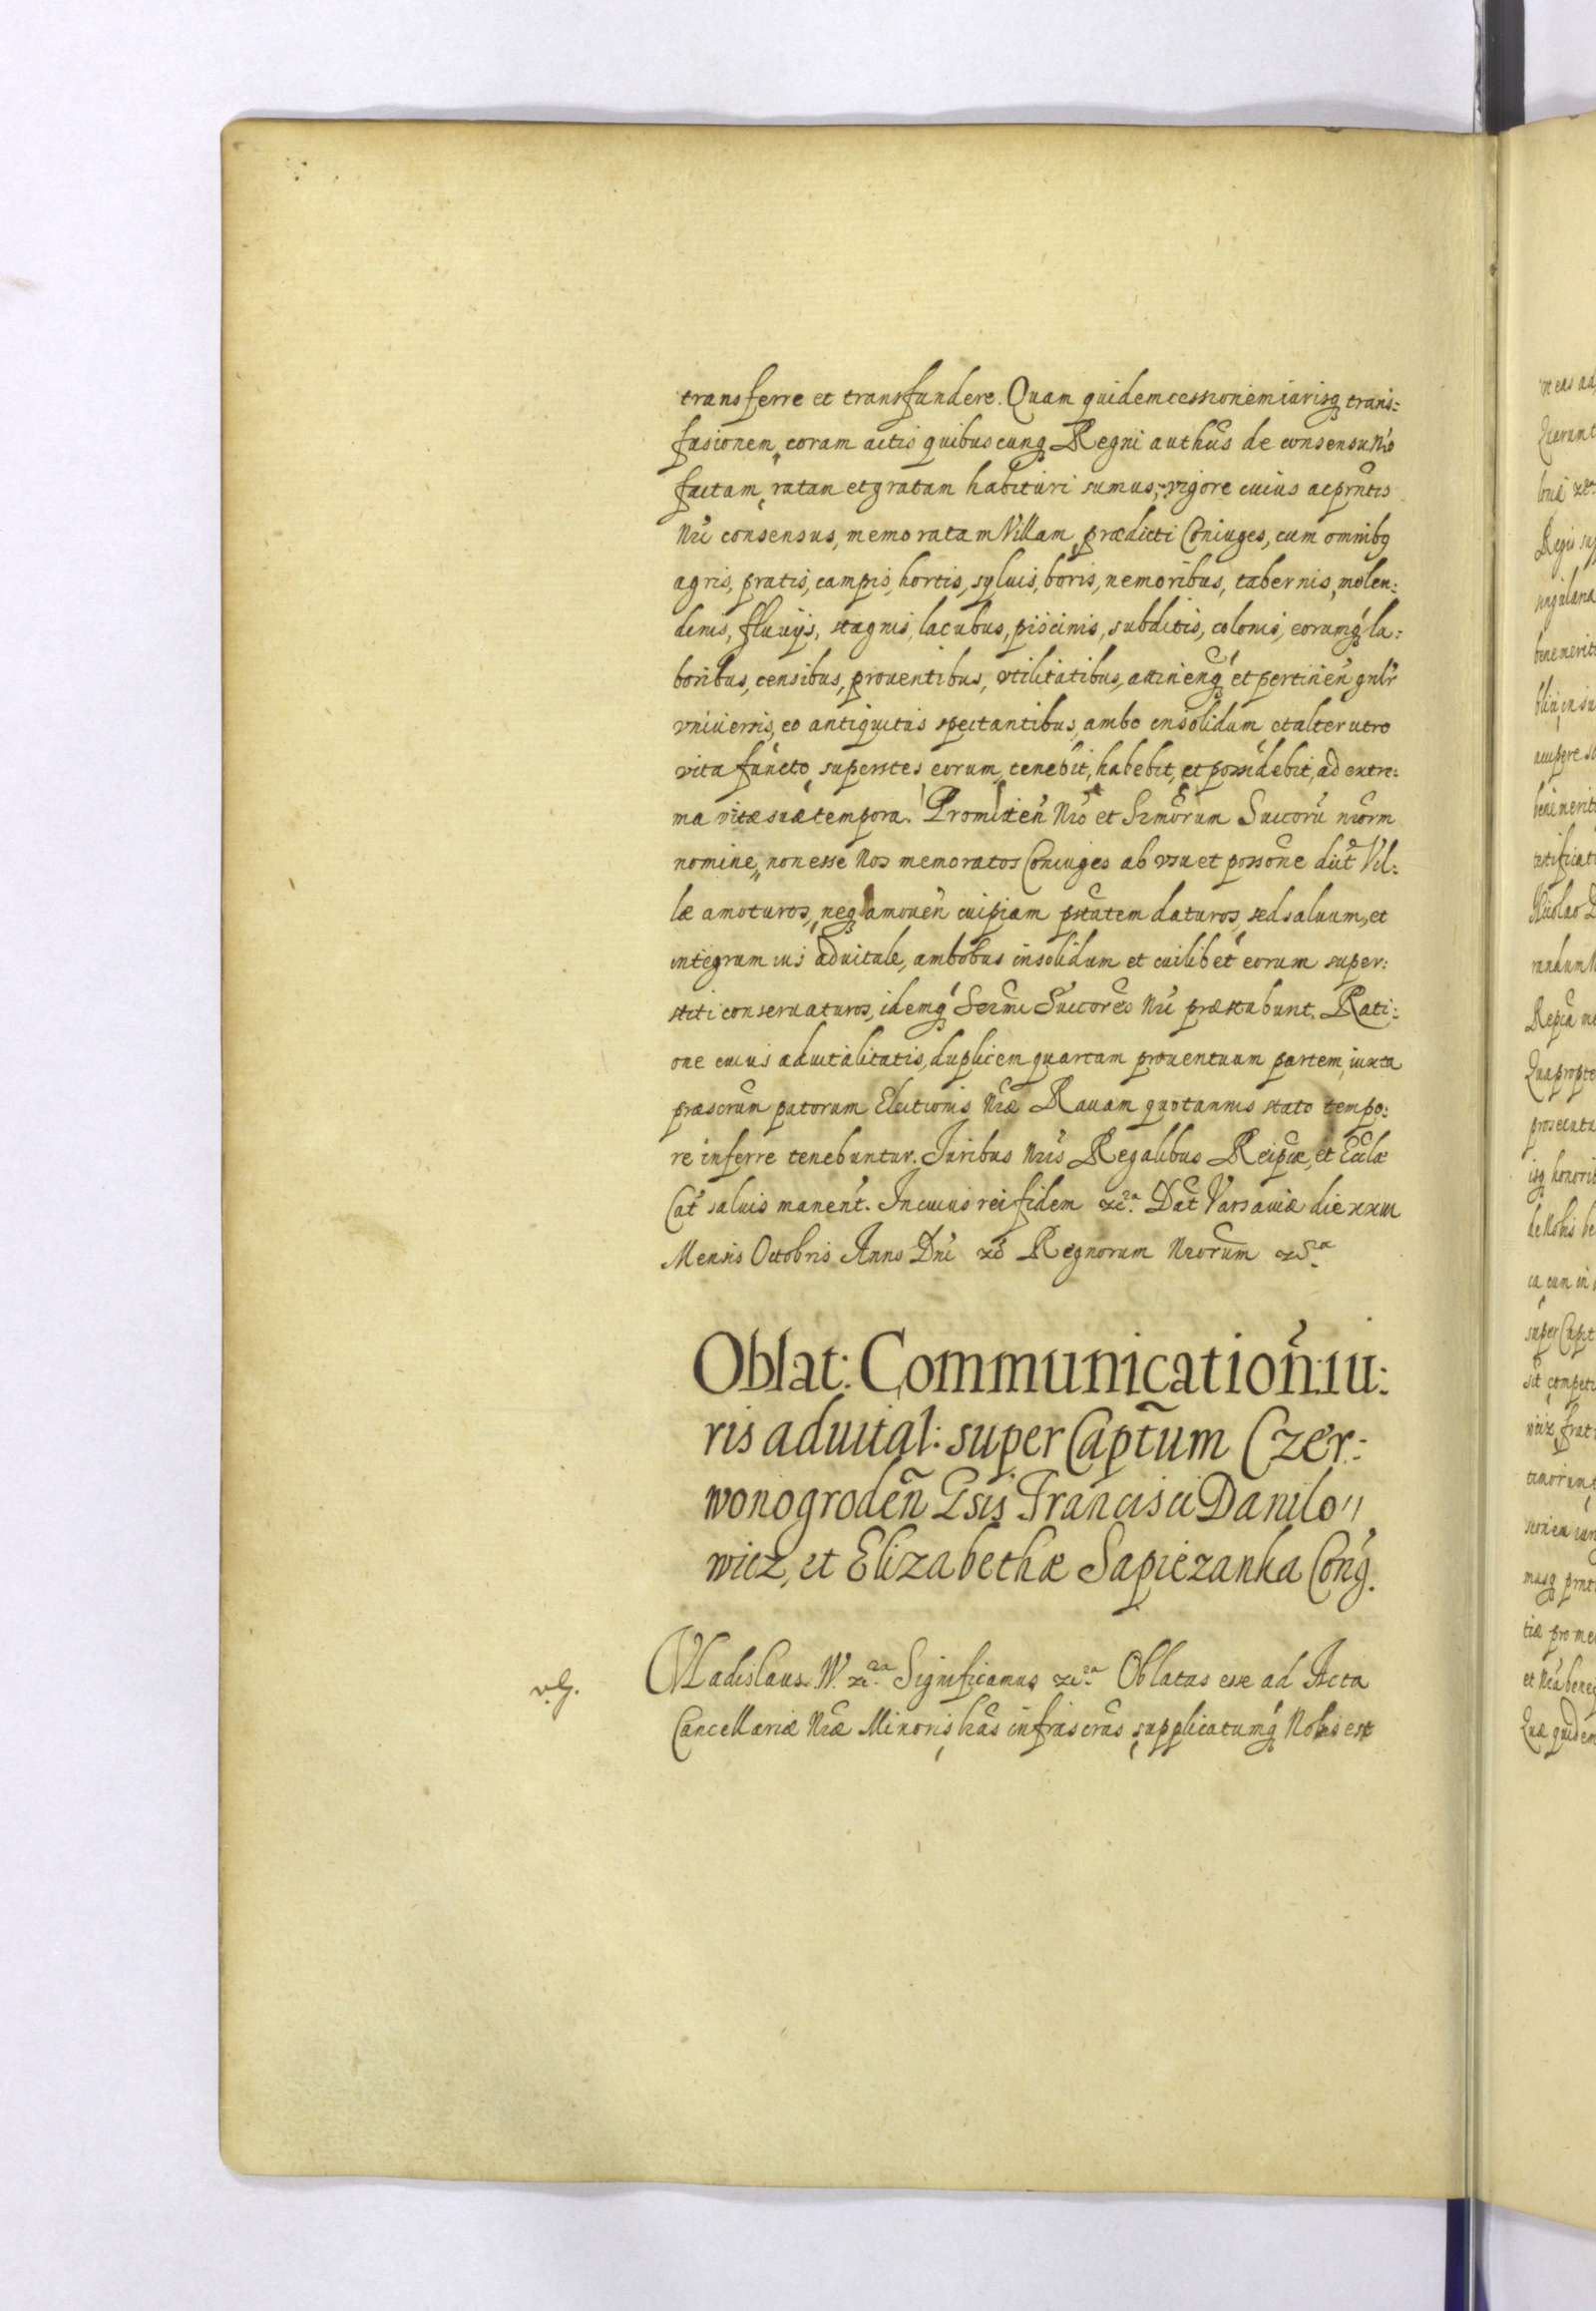 transferre et transfundere. Quam quidem cessionem iurisq trans:
fusionem, coram actis quibuscunq Regni authūs de consensu Nro
factam, ratam et gratam habituri sumus, vigore cuius ac prntis
Nri consensus, memoratam Villam, prædicti Coniuges, cum omnibq
agris, pratis, campis, hortis, syluis, boris, nemoribus, tabernis, molen:
dinis, fluuijs, stagnis, lacubus, piscinis, subditis, colonis, eorumq la:
boribus, censibus, prouentibus, vtilitatibus, attinenq et pertinen gnlr
vniuersis, eo antiquitus spectantibus, ambo insolidum, et alterutro
vita functo, superstes eorum, tenebit, habebit, et possidebit, ad extre:
ma vitæ suæ tempora. Promitten Nro et Srmorum Succorū nrorm
nomine, non esse Nos memoratos Coniuges ab vsu et possone dict Vil:
læ amoturos, neq amouen cuipiam ptatem daturos, sed saluum, et
integrum ius aduitale, ambobus insolidum et cuilibet eorum super:
stiti conseruaturos, idemq Sermi Succores Nri præstabunt. Rati:
one cuius aduitalitatis, duplicem quartam prouentuum partem, iuxta
præscrum pctorum Electionis Nræ Rauam quotannis stato tempo:
re inferre tenebuntur. Iuribus Nris Regalibus Reipcæ, et Ecclæ
Cat saluis manent. In cuius rei fidem &c. Dat Varsauiæ die xxiii
Mensis Octobris Anno Dni &c Regnorum Nrorum &c.
Oblat: Communication iu:
ris aduital: super Captum Czer:
wonogroden Gsis Francisci Danilo
wicz, et Elizabethæ Sapiezanka Conj.
Vladislaus. W. &c. Significamus &c. Oblatas esse ad Acta
Cancellariæ Nræ Minoris, lras infrascras, supplicatumq Nobis est